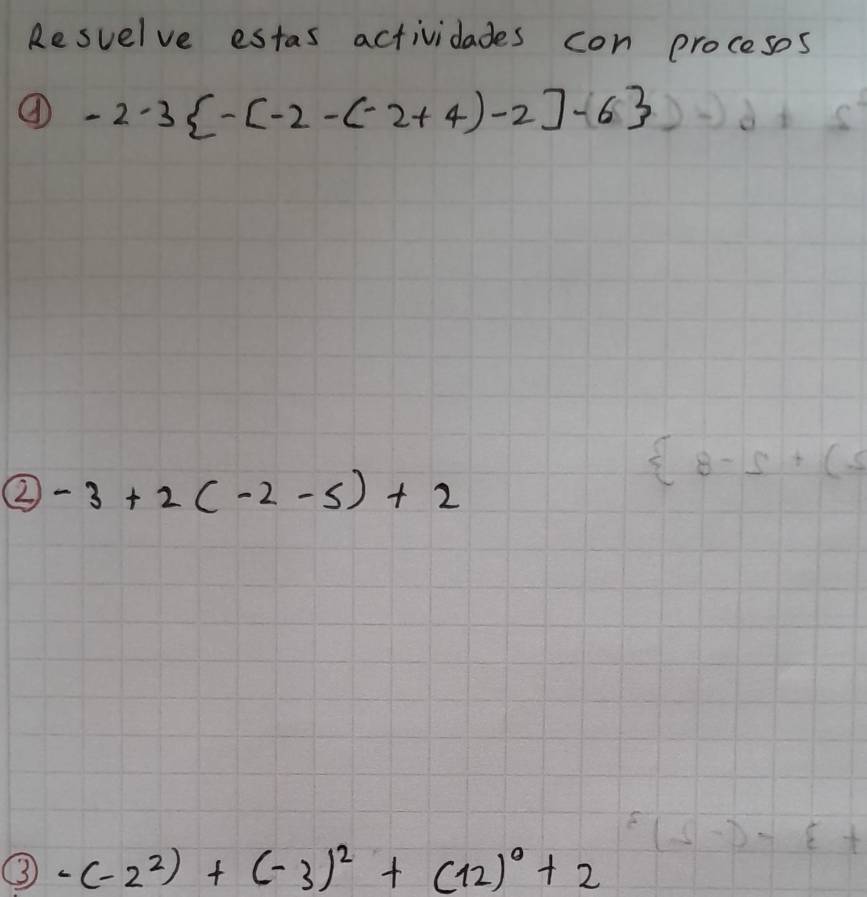 Resuelve estas actividades con procesos
① -2-3{-[-2-(-2+4)-2]-6}
② -3+2(-2-5)+2
③ -(-2²)+(-3)²+(12)⁰+2